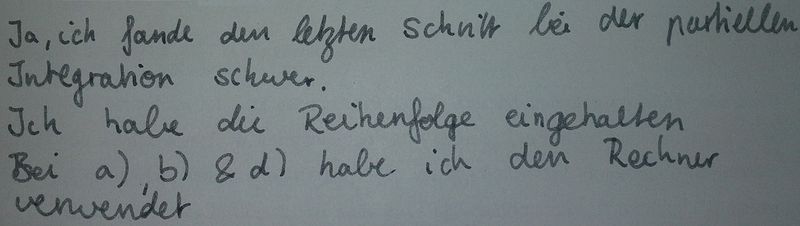 Ja, ich fande den letzten Schritt bei der partiellen
Integration schwer.
Ich habe die Reihenfolge eingehalten
Bei a), b) & d) habe ich den Rechner
verwendet